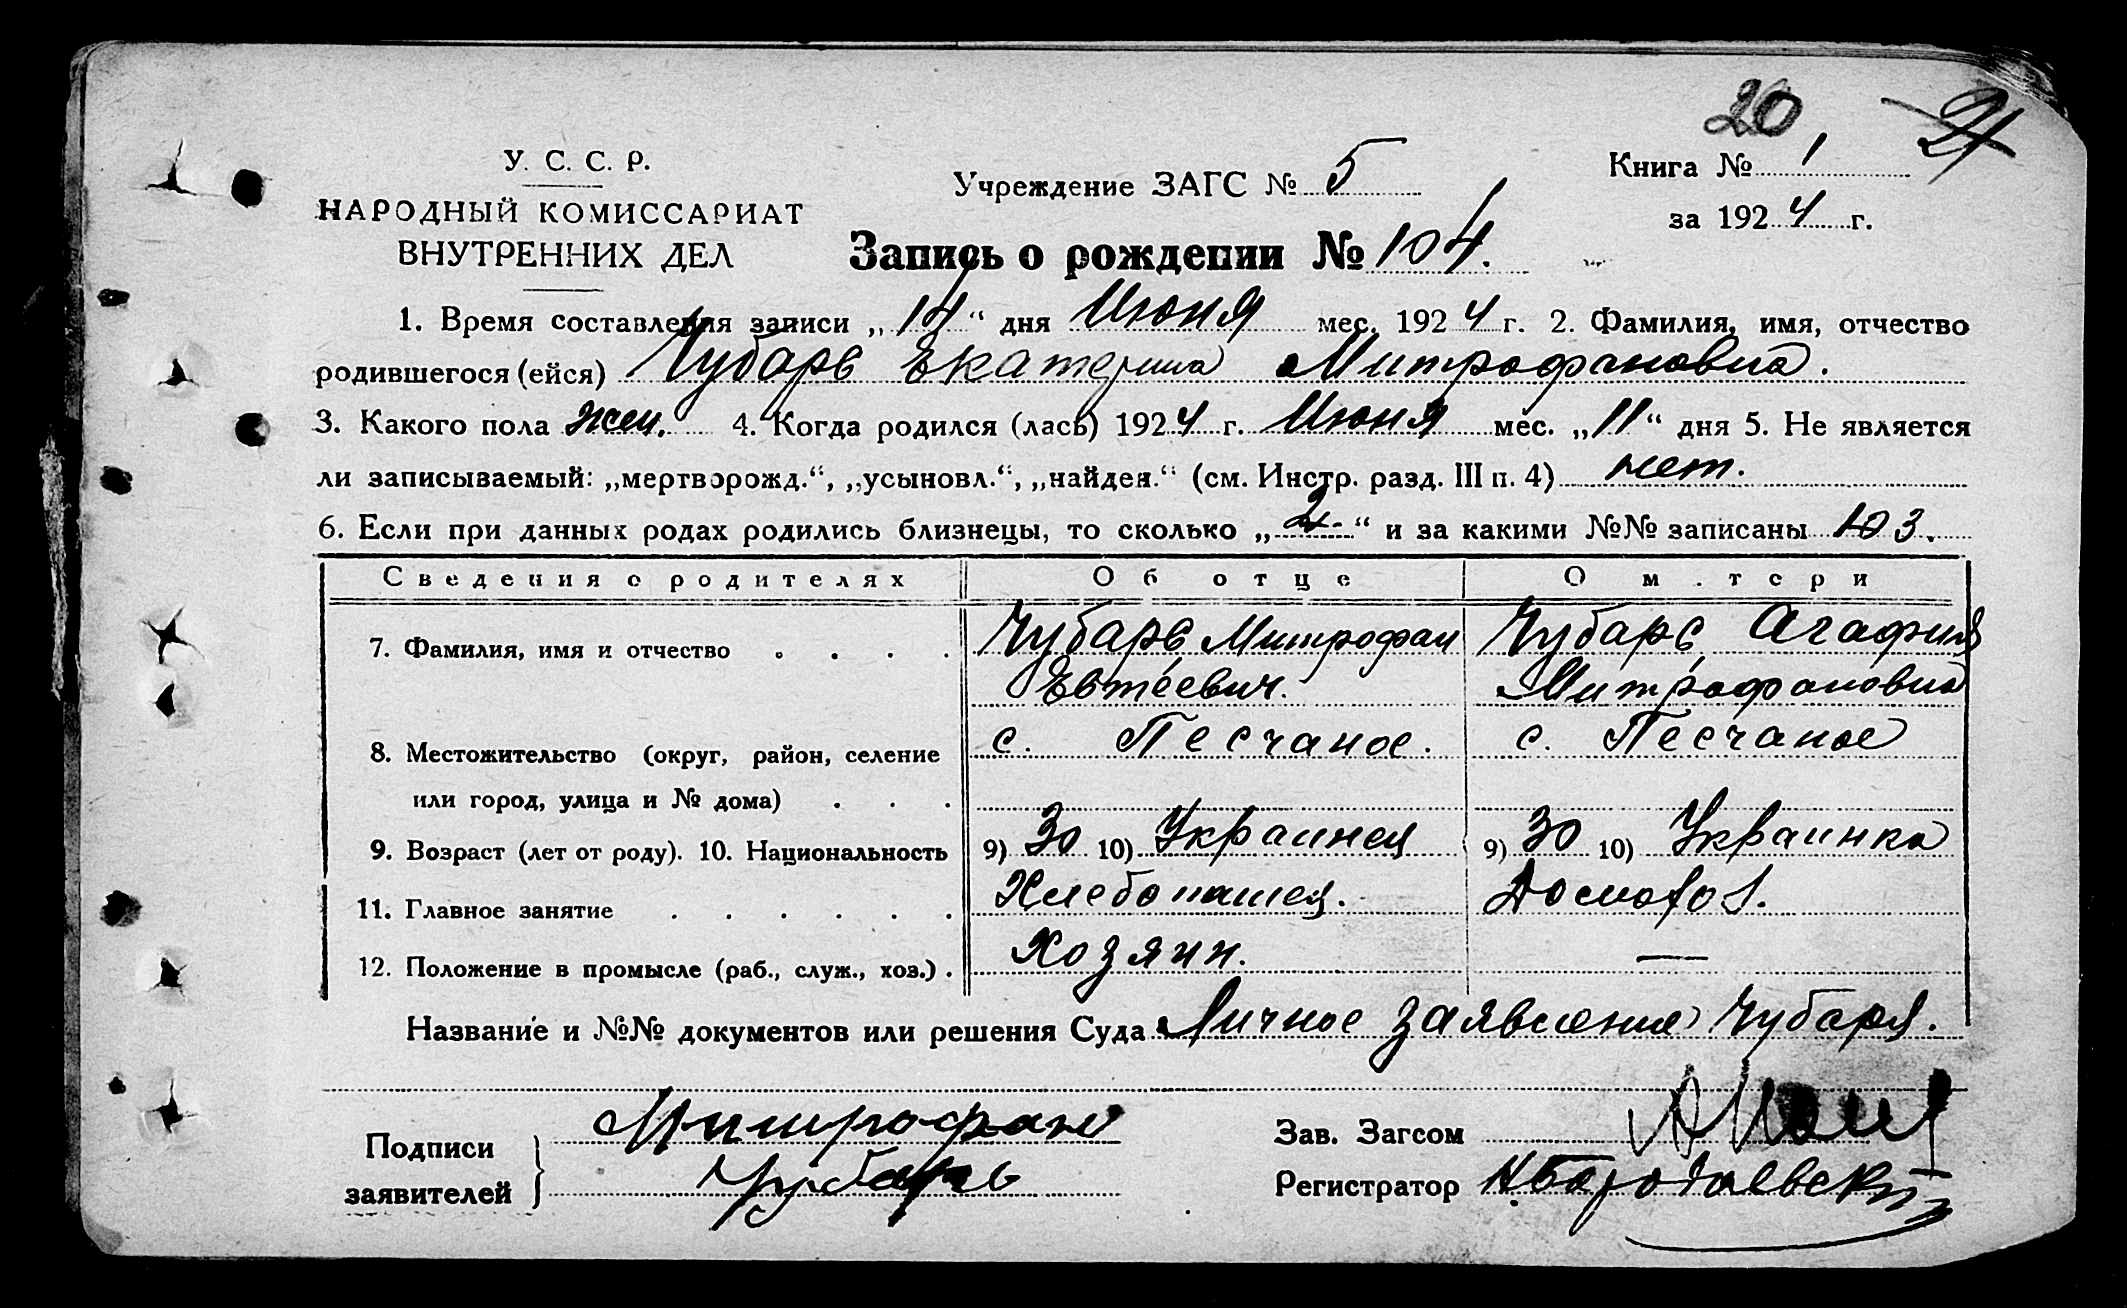 20 21
У. С. С. Р.
НАРОДНЫЙ КОМИССАРИАТ
ВНУТРЕННИХ ДЕЛ
Учреждение ЗАГС № 5
Книга № 1
за 1924 г.
Запись о рождении № 104.
1. Время составления записи „14“ дня Июня мес. 1924 г. 2. Фамилия, имя, отчество
родившегося (ейся) Чубарь Екатерина Митрофановна.
3. Какого пола жен. 4. Когда родился (лась) 1924 г. Июня мес. „11“ дня 5. Не является
ли записываемый: „мертворожд.“, „усыновл.“, „найден.“ (см. Инстр. разд. III п. 4) нет.
6. Если при данных родах родились близнецы, то сколько „2“ и за какими №№ записаны 103.
Сведения о родителях Об отце О матери
7. Фамилия, имя и отчество Чубарь Митрофан Чубарь Агафия
Евтеевич. Митрофановна
8. Местожительство (округ, район, селение с. Песчаное. с. Песчаное
или город, улица и № дома)
9. Возраст (лет от роду). 10. Национальность 9) 30 10) Украинец 9) 30 10) Украинка
11. Главное занятие Хлебопашец.
12. Положение в промысле (раб., служ., хоз.) Хозяин. —
Название и №№ документов или решения Суда Личное заявление Чубаря.
Подписи заявителей Митрофан
Чубарь
Зав. Загсом
Регистратор